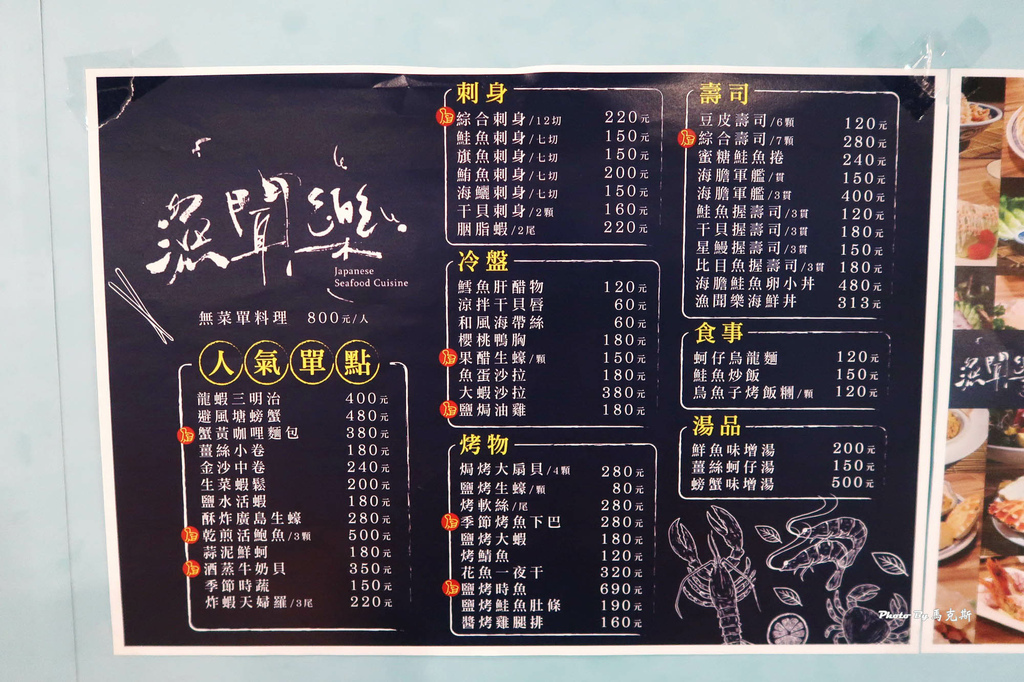 漁聞樂
Japanese
Seafood Cuisine
無菜單料理 800元/人
人氣單點
龍蝦三明治 400元
避風塘螃蟹 480元
蟹黃咖哩麵包 380元
薑絲小卷 180元
金沙中卷 240元
生菜蝦鬆 200元
鹽水活蝦 180元
酥炸廣島生蠔 280元
乾煎活鮑魚/3顆 500元
蒜泥鮮蚵 180元
酒蒸牛奶貝 350元
季節時蔬 150元
炸蝦天婦羅/3尾 220元
刺身
綜合刺身/12切 220元
鮭魚刺身/七切 150元
旗魚刺身/七切 150元
鮪魚刺身/七切 200元
海鱺刺身/七切 150元
干貝刺身/2顆 160元
胭脂蝦/2尾 220元
冷盤
鱈魚肝醋物 120元
涼拌干貝唇 60元
和風海帶絲 60元
櫻桃鴨胸 180元
果醋生蠔/顆 150元
魚蛋沙拉 180元
大蝦沙拉 380元
鹽焗油雞 180元
烤物
焗烤大扇貝/4顆 280元
鹽烤生蠔/顆 80元
烤軟絲/尾 280元
季節烤魚下巴 280元
鹽烤大蝦 180元
烤鯖魚 120元
花魚一夜干 320元
鹽烤時魚 690元
鹽烤鮭魚肚條 190元
醬烤雞腿排 160元
壽司
豆皮壽司/6顆 120元
綜合壽司/7顆 280元
蜜糖鮭魚捲 240元
海膽軍艦/貫 150元
海膽軍艦/3貫 400元
鮭魚握壽司/3貫 120元
干貝握壽司/3貫 180元
星鰻握壽司/3貫 150元
比目魚握壽司/3貫 180元
海膽鮭魚卵小丼 480元
漁聞樂海鮮丼 313元
食事
蚵仔烏龍麵 120元
鮭魚炒飯 150元
烏魚子烤飯糰/顆 120元
湯品
鮮魚味增湯 200元
薑絲蚵仔湯 150元
螃蟹味增湯 500元
漁聞樂
Photo By 馬克斯